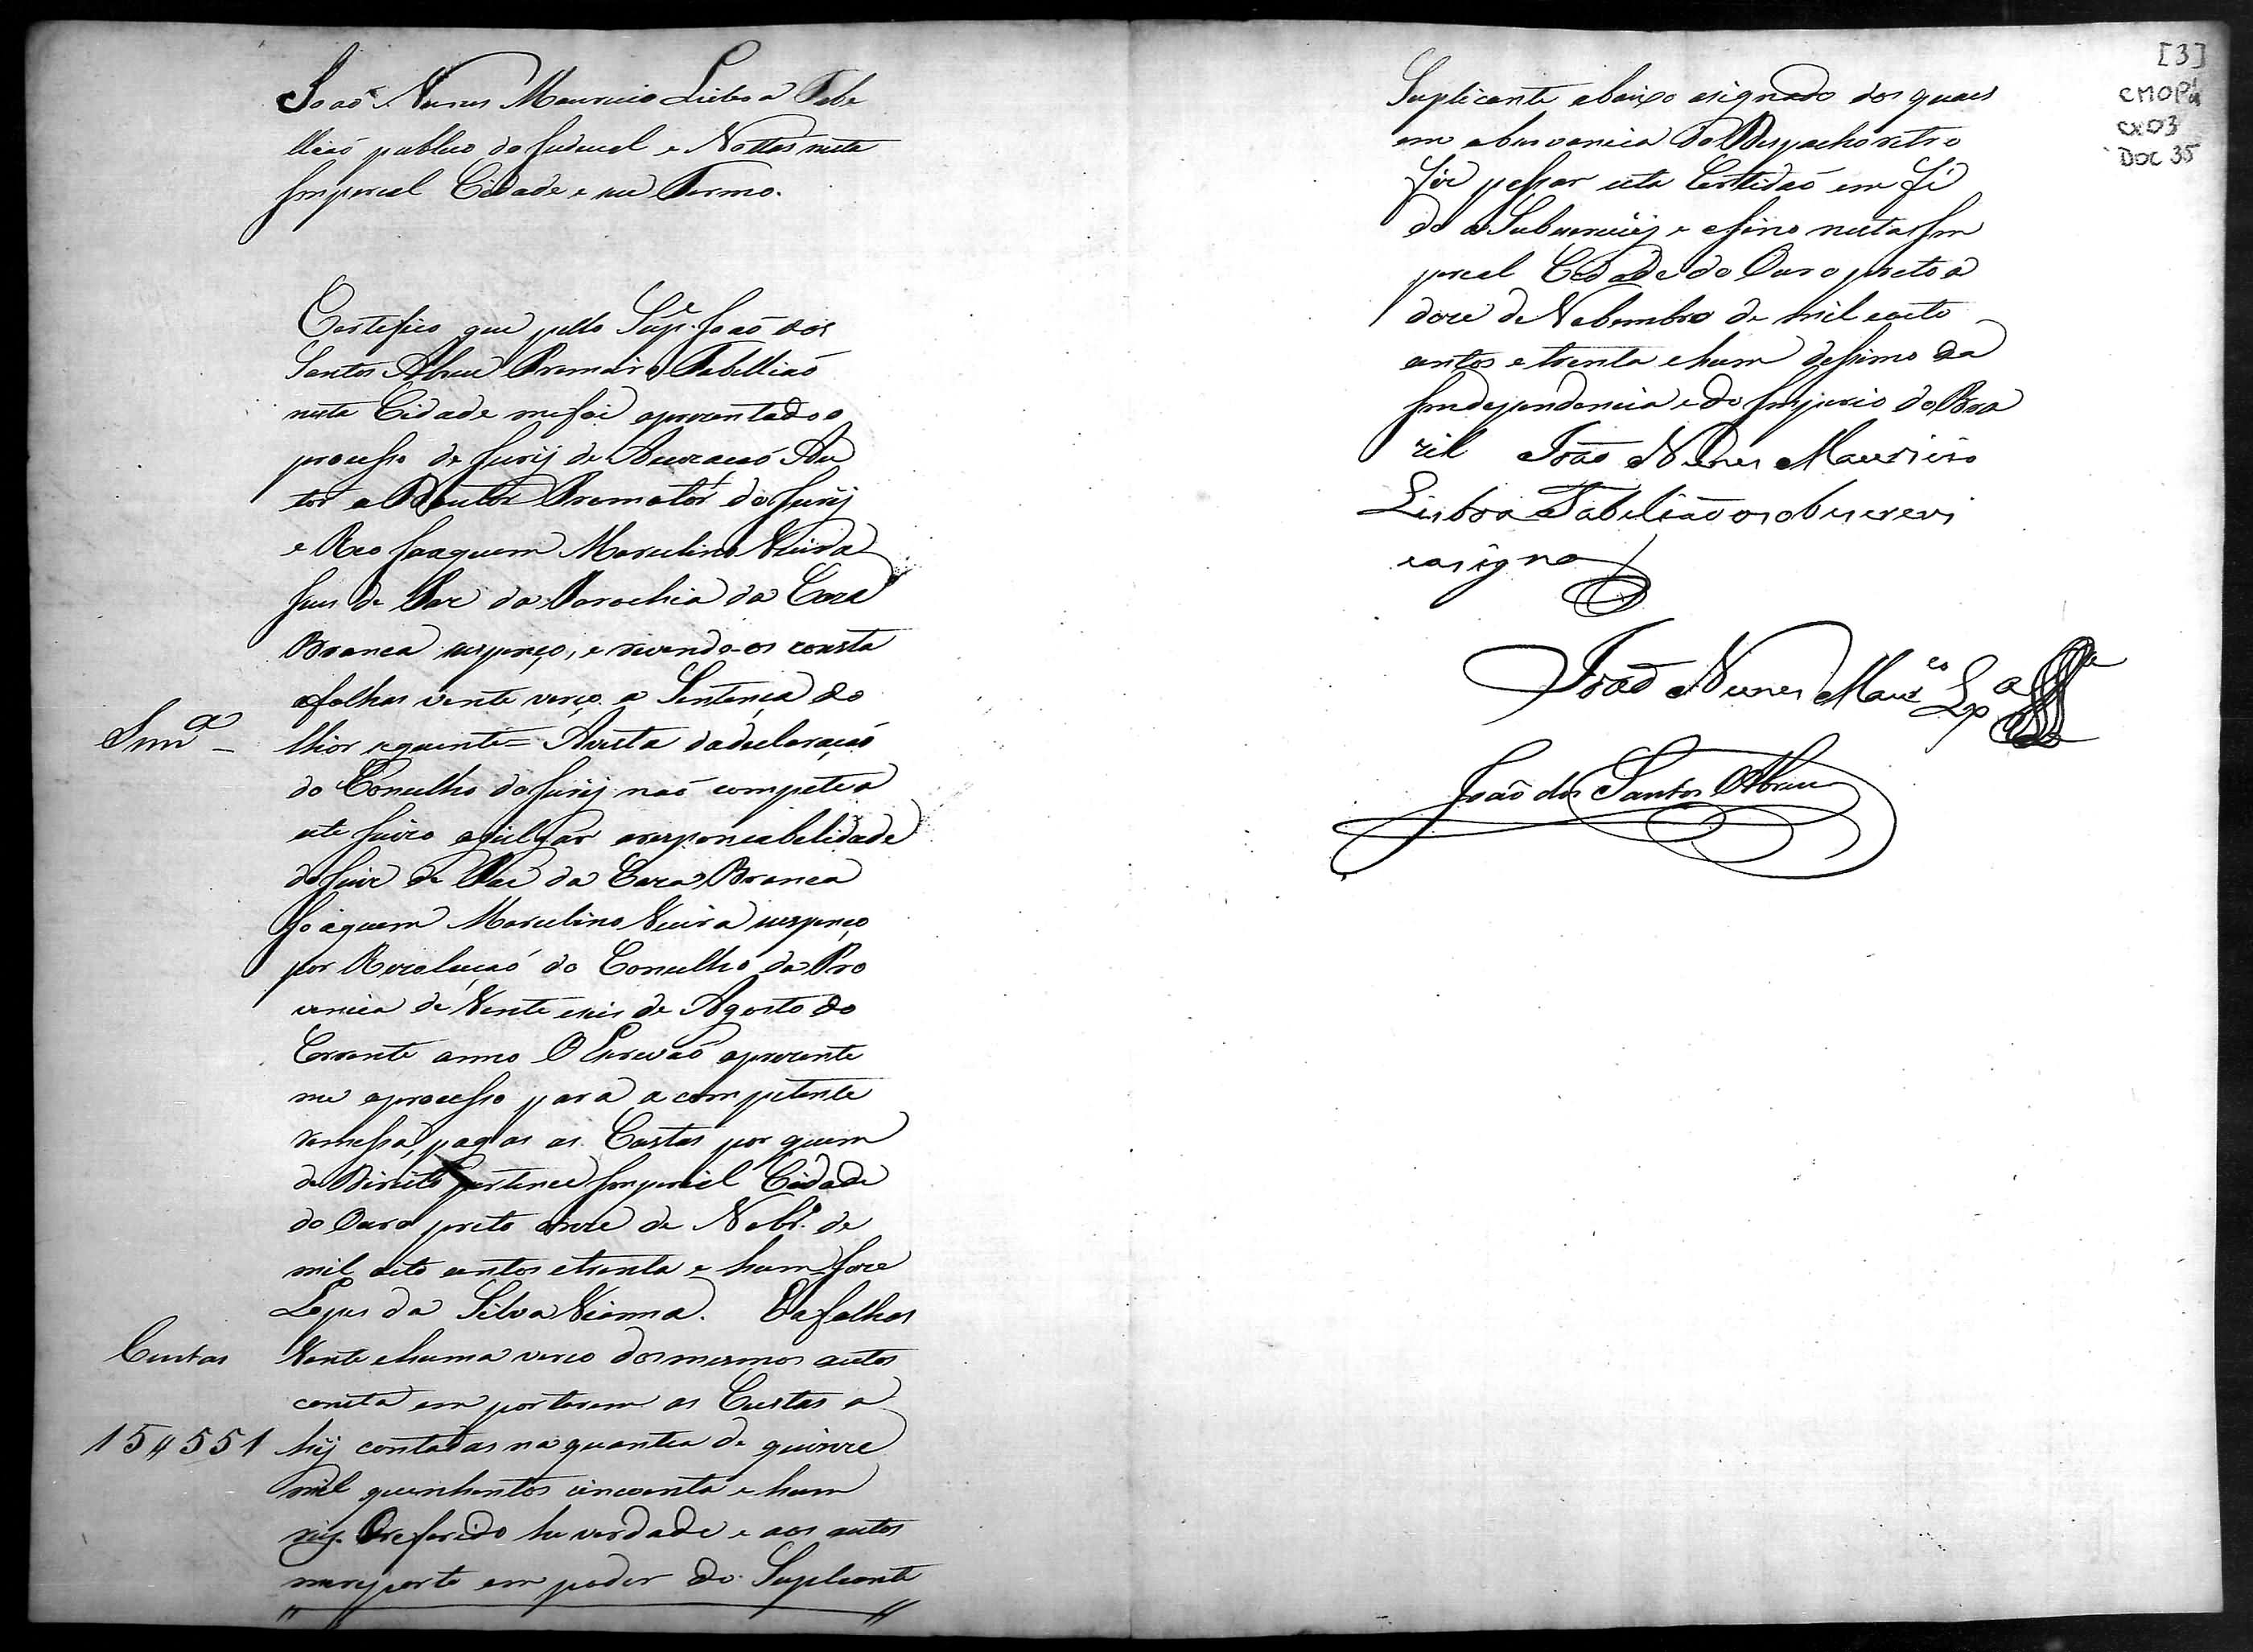 João Nunes Mauricio Lisboa Tabe
llião publico do Judicial e Nottas nesta
Imperial Cidade e seu Termo.
Certefico que pello Sup.e João dos
Santos Abreu Primeiro Tabellião
nesta Cidade me foi aprezentado o
processo de Jurij de Acuzacaó Au
tor o Doutor Promotor do Jurij
e Reo Joaquim Marcelino Vieira
Juis de Paz da Parochia da Caza
Branca suspenço, e revendo-os consta
afolhas vinte verço a Sentença do
Snn.ça
thior seguinte = Avista dadeclaração
do Concelho do Jurij naó compete a
este Juizo ajulgar aresponcabelidade
do Juiz de Paz da Caza Branca
Joaquim Marcelino Vieira suspenço
por Rezoluçaó do Concelho da Pro
vincia de Vinte seis de Agosto do
Corrente anno O Escrivaó aprezente
me oprocesso para a competente
remessa, pagas as Custas por quem
de Direito pertence Imperial Cidade
do Ouro preto onze de Nobr.o de
mil oito centos etrinta e hum = Joze
Lopes da Silva Vianna. Eafolhas
Custas
Vinte ehuma verco dos mesmos autos
consta em portarem as Custas a
15$551
hij contadas na quantia de quinze
mil quinhentos cincoenta e hum
reis. Oreferido he verdade e aos autos
mereporto em poder do Suplicante
[3]
CMOP
CX03
DOC 35
Suplicante abaixo asignado dos quaes
em observancia do Despacho retro
fiz passar esta Certidaó em fé
do q Subscrevij e assino nesta Im
perial Cidade do Ouro preto a
doze de Nobembro de mil eoito
centos e trinta e hum dessimo da
Independencia e do Imperio do Bra
zil João Nunes Mauricio
Lisboa Tabelião os obescrevi
e asigno
João Nunes Maur.co Lx.a
João dos Santos Abreu